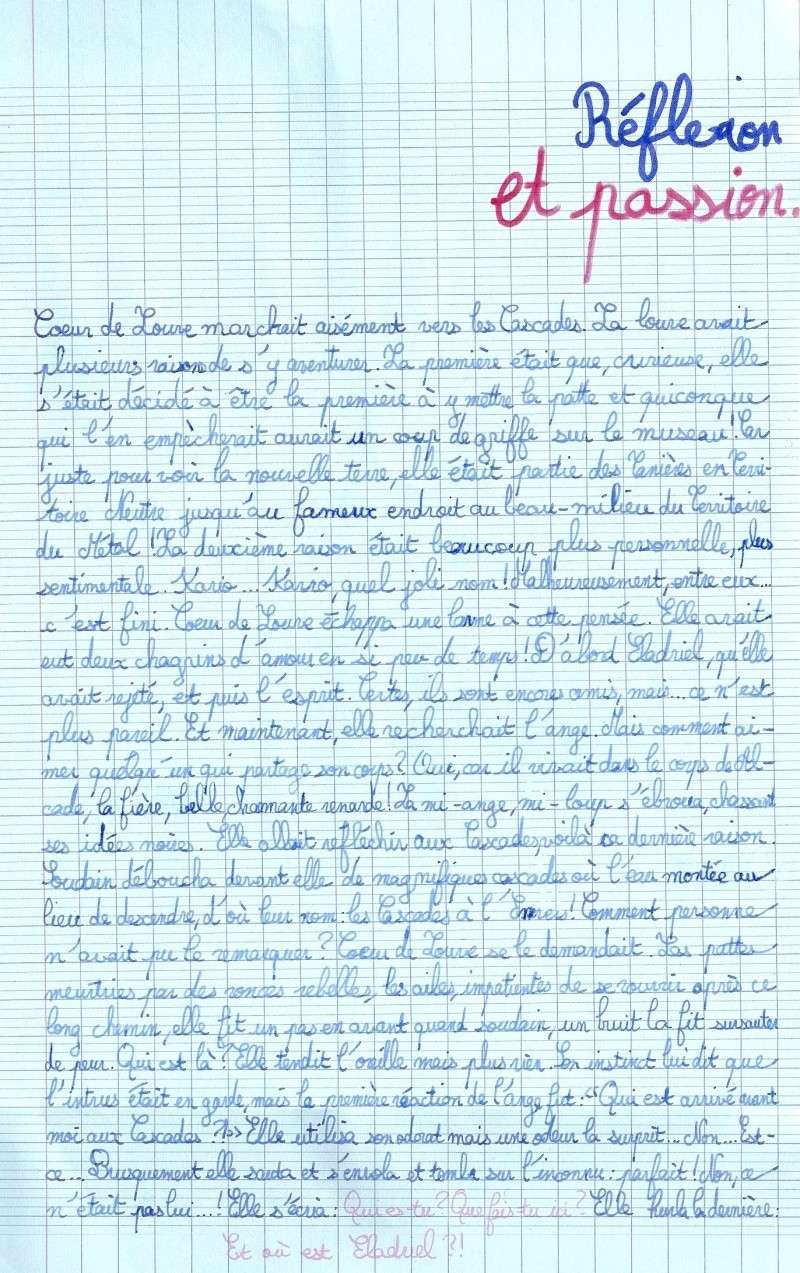 Réflexion
et passion.
Coeur de Louve marchait aisément vers les Cascades. La louve avait
plusieurs raison de s'y aventurer. La première était que, curieuse, elle
s'était décidé à être la première à y mettre la patte et quiconque
qui l'en empêcherait aurait un coup de griffe sur le museau! Car
juste pour voir la nouvelle terre, elle était partie des Tanières en Terri-
toire Neutre jusqu'au fameux endroit au beau-milieu du Territoire
du Métal! La deuxième raison était beaucoup plus personnelle, plus
sentimentale. Kario... Kario, quel joli nom! Malheureusement, entre eux...
c'est fini. Coeur de Louve échappa une larme à cette pensée. Elle avait
eut deux chagrins d'amour en si peu de temps! D'abord Eladriel, qu'elle
avait rejeté, et puis l'esprit. Certes, ils sont encore amis, mais... ce n'est
plus pareil. Et maintenant, elle recherchait l'ange. Mais comment ai-
mer quelqu'un qui partage son corps? Oui, car il vivait dans le corps de
cade, la fière, belle, charmante renarde! La mi-ange, mi-loup s'ébroua, chassant
ses idées noires. Elle allait réfléchir aux Cascades, voilà sa dernière raison.
Soudain déboucha devant elle de magnifiques cascades où l'eau montée au
lieu de descendre, d'où leur nom: les Cascades à l'Envers! Comment personne
n'avait pu le remarquer? Coeur de Louve se le demandait. Les pattes
meurtries par des ronces rebelles, les ailes, impatientes de se rouvrir après ce
long chemin, elle fit un pas en avant quand soudain, un bruit la fit sursauter
de peur. Qui est là? Elle tendit l'oreille mais plus rien. Son instinct lui dit que
l'intrus était en garde, mais la première réaction de l'ange fut: "Qui est arrivé avant
moi aux Cascades ?!>> Elle utilisa son odorat mais une odeur la surprit... Non... Est-
ce... Brusquement elle sauta et s'envola et tomba sur l'inconnu: parfait! Non, ce
n'était pas lui...! Elle s'écria: Qui es-tu? Que fais-tu ici? Elle hurla la dernière:
Et où est Eladriel?!